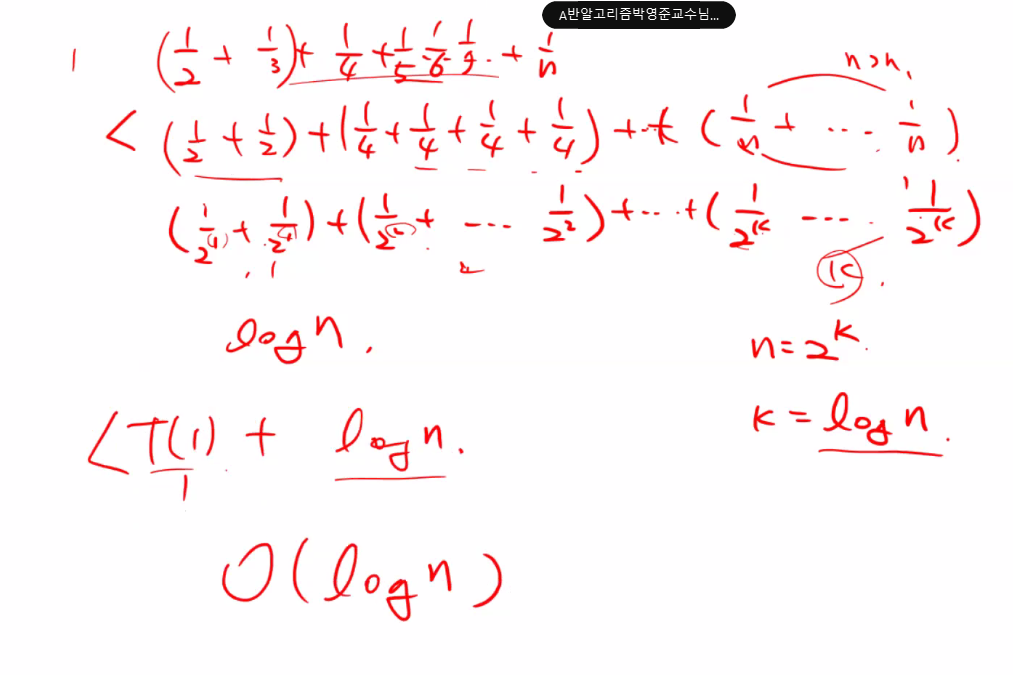 A반알고리즘박영준교수님...
1 (1/2 + 1/3) + 1/4 + 1/5 1/6 1/7 .. + 1/n
n>n,
< (1/2 + 1/2) + (1/4 + 1/4 + 1/4 + 1/4) + .. + (1/n + ... 1/n)
(1/2^(1) + 1/2^(1)) + (1/2^(2) + ... 1/2^2) + ... + (1/2^k .... 1/2^k)
1
k
log n.
n = 2^k.
< T(1) + log n.
k = log n.
1
O(log n)